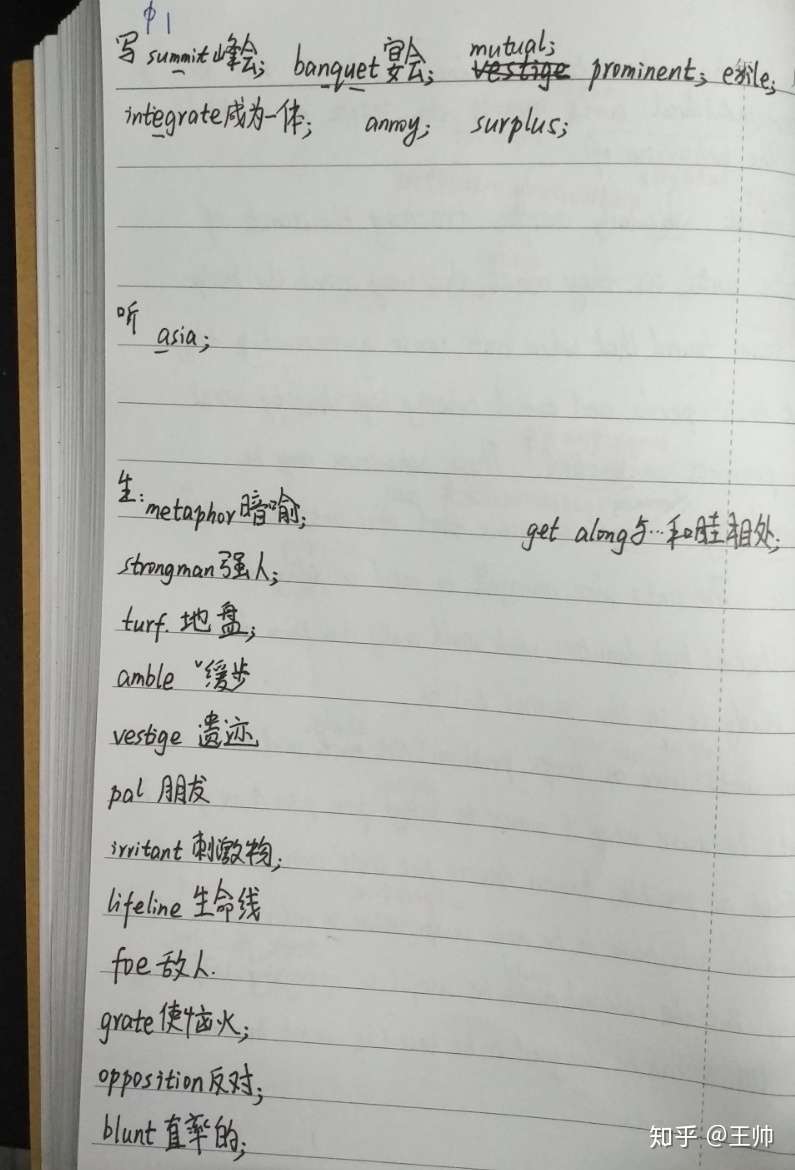 P1
写 summit 峰会; banquet 宴会; mutual; vestige prominent; exile;
integrate 成为一体; annoy; surplus;
听 asia;
生: metaphor 暗喻;
get along 与…和睦相处;
strongman 强人;
turf. 地盘;
amble 缓步
vestige 遗迹
pal 朋友
irritant 刺激物;
lifeline 生命线
foe 敌人.
grate 使恼火;
opposition 反对;
blunt 直率的;
知乎 @王帅